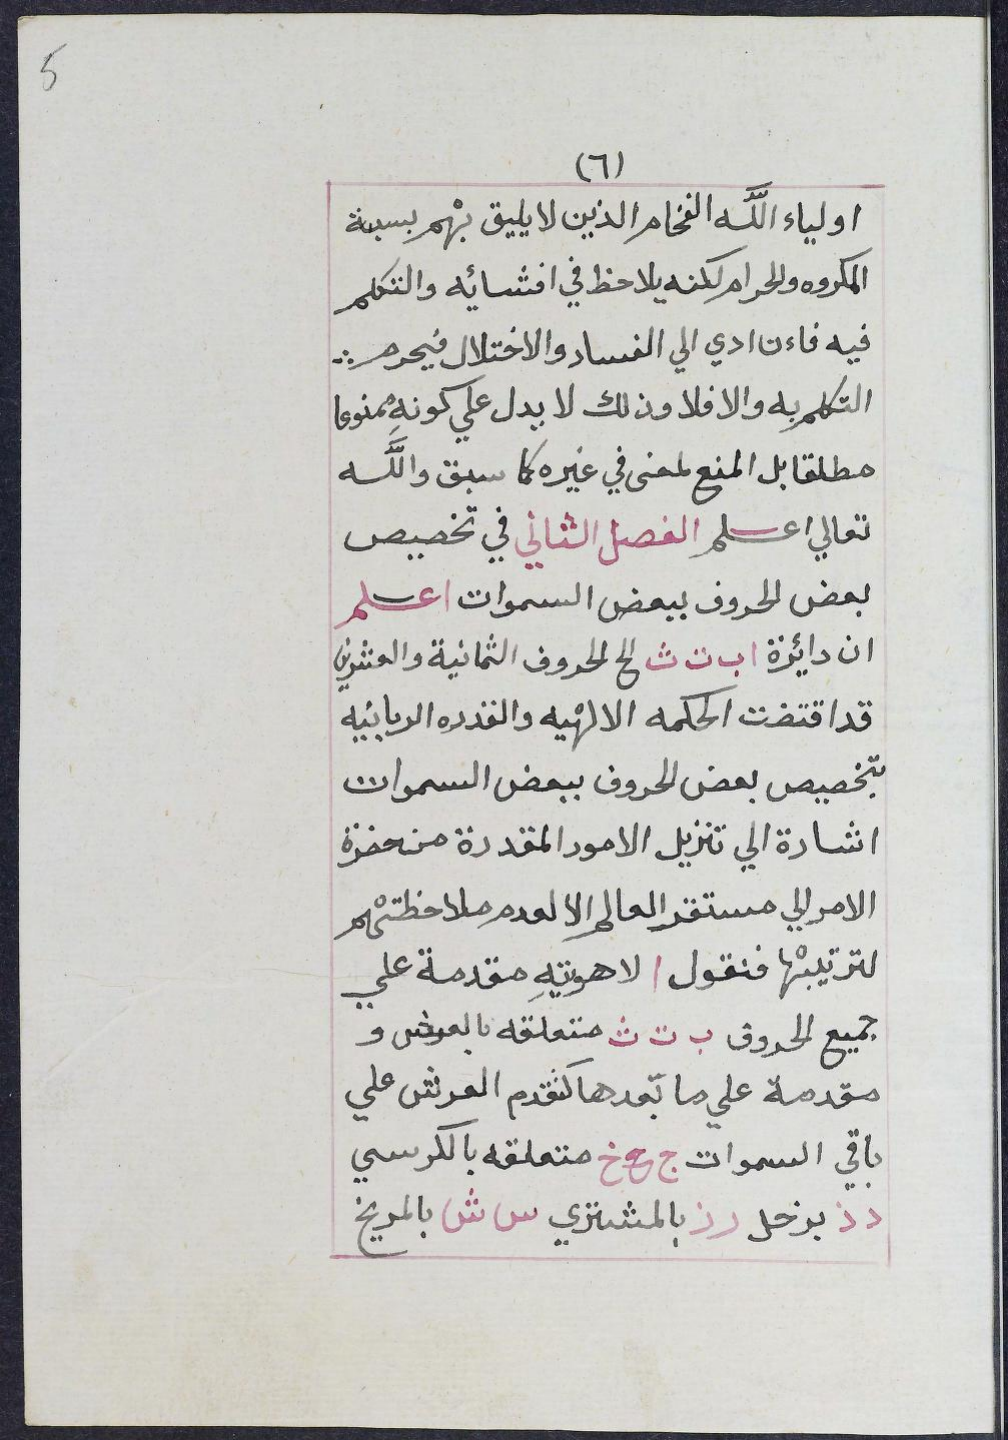 5
(٦)
اولياء اللَّه الفخام الذين لا يليق بهم بسمة
المكروه والحرام لكنه يلاحظ في افشائه والتكلم
فيه فاءن ادي الي الفساد والاختلال فيحرم ∴
التكلم به والا فلا وذلك لا يدل علي كونهِ ممنوعا
مطلقا بل المنع لمعنى في غيره كما سبق واللَّه
تعالي اعلم الفصل الثاني في تخصيص
بعض الحروف ببعض السموات اعلم
ان دائرة ا ب ت ث الخ الحروف الثمانية والعشرين
قد اقتضت الحكمه الالهيه والقدره الربانيه
بتخصيص بعض الحروف ببعض السموات
اشارة الي تنزيل الامور المقدرة من حضرة
الامر الي مستقر العالم الا لعدم ملاحظتهم
لترتيبها فنقول ا لاهوتيهِ مقدمة علي
جميع الحروف ب ت ث متعلقه بالعرش و
مقدمة علي ما بعدها كتقدم العرش علي
باقي السموات ج ح خ متعلقه بالكرسي
د ذ بزحل ر ز بالمشتري س ش بالمريخ